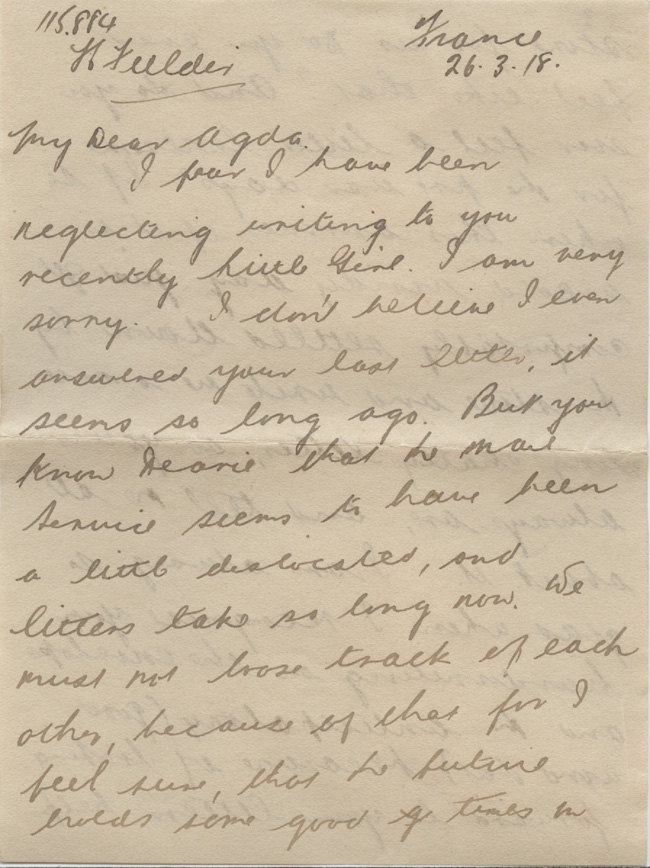 115.884
France
H Feilder
26.3.18.
My Dear Agda.
I fear I have been
neglecting writing to you
recently little Girl. I am very
sorry. I don't believe I even
answered your last letter, it
seems so long ago. But you
know Dearie that the mail
Service seems to have been
a little dislocated, and
letters take so long now. We
must not loose track of each
other, because of that for I
feel sure, that the future
holds some good times in